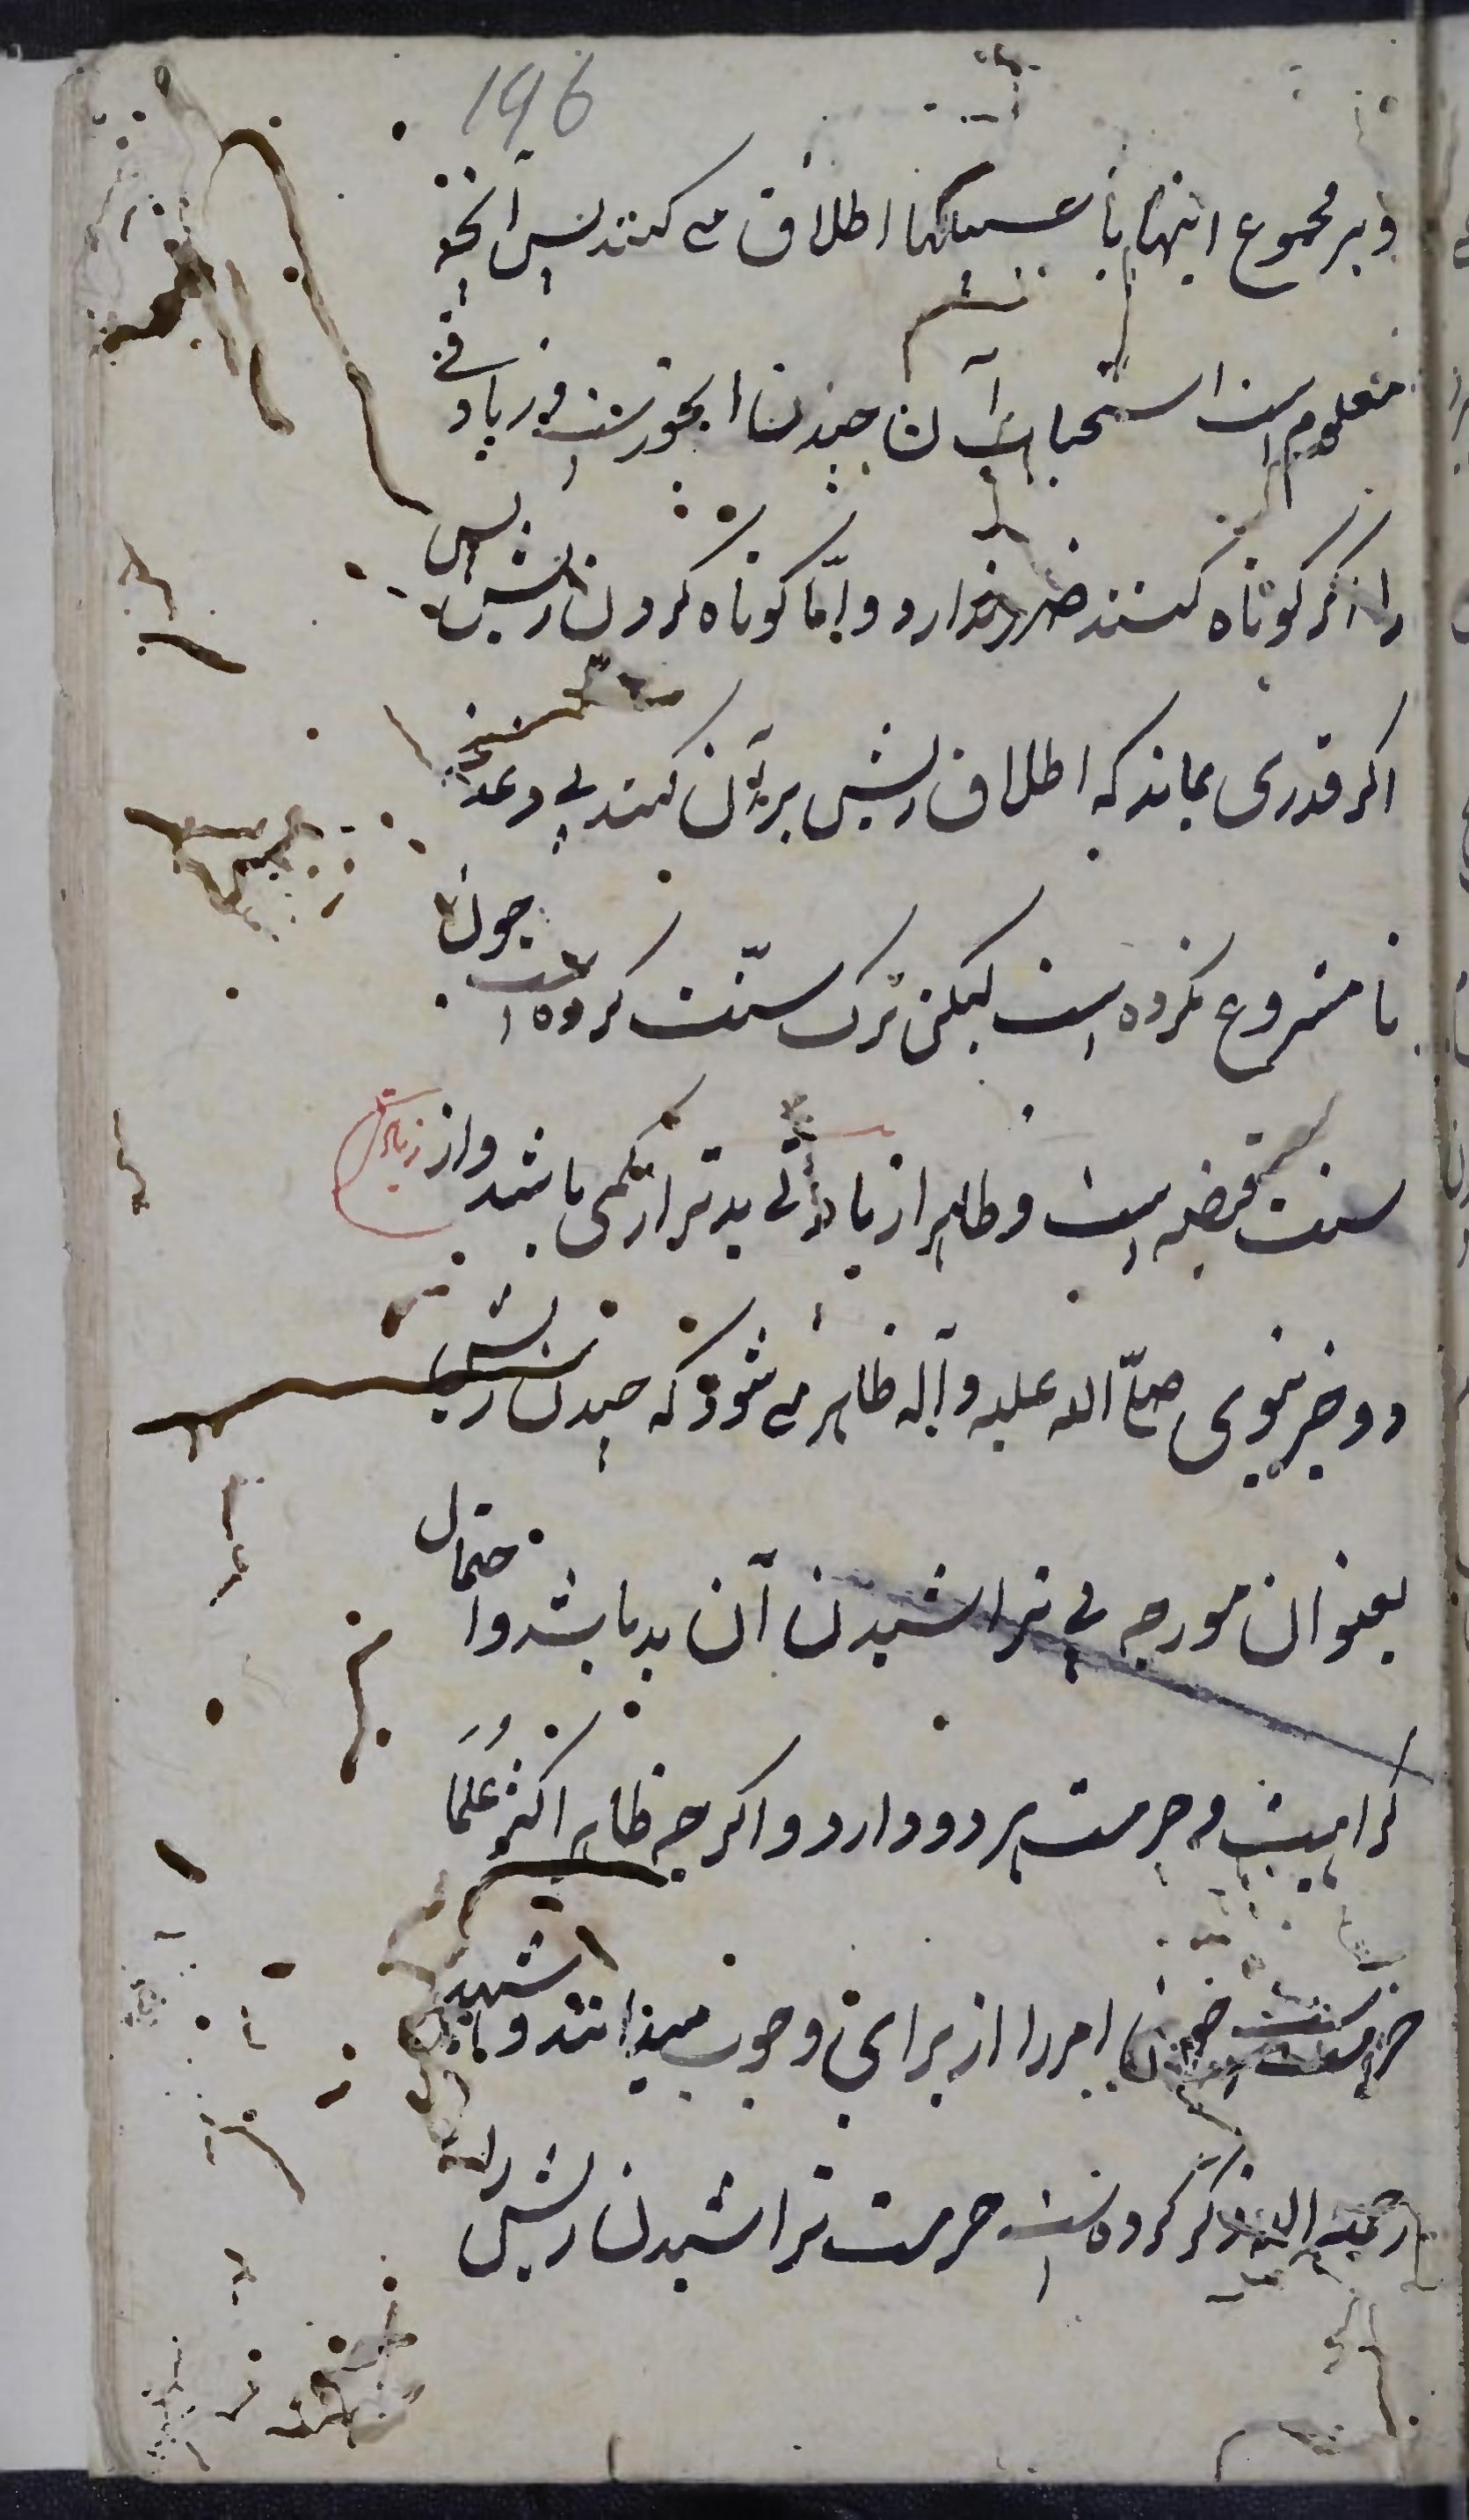 196
و بر مجموع اینها با سبیلها اطلاق می کنند پس آنچه
معلوم است استحباب آن چیدن شاربست و زیادتی
را اگر کوتاه کنند ضرر ندارد و امّا کوتاه کردن ریش پس
اگر قدری بماند که اطلاق ریش بر آن کنند بی دغدغه
نا مشروع نکرده است لیکن ترک سنّت کرده است چون
سنت قبضه است و ظاهرا زیادتی بدتر از کمی باشد و از زیادتی
دو خبر نبوی صلّی الله علیه و آله ظاهر می شود که چیدن ریش
بعنوان مورچه پی تراشیدن آن بد باشد و احتمال
کراهیت و حرمت هر دو دارد و اگر چه ظاهر اکثر عُلَما
حرمتست چون امر را از برای وجوب میدانند و شهید
رحمه الله ذکر کرده است حرمت تراشیدن ریش را